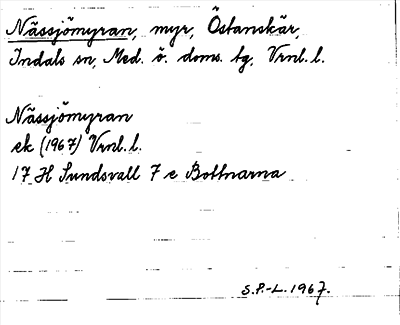 Nässjömyran, myr, Östanskär,
Indals sn, Med. ö. doms. tg, Vrnl. l.
Nässjömyran
ek (1967) Vrnl. l.
17 H Sundsvall 7 e Bottnarna
S.P.-L. 1967.